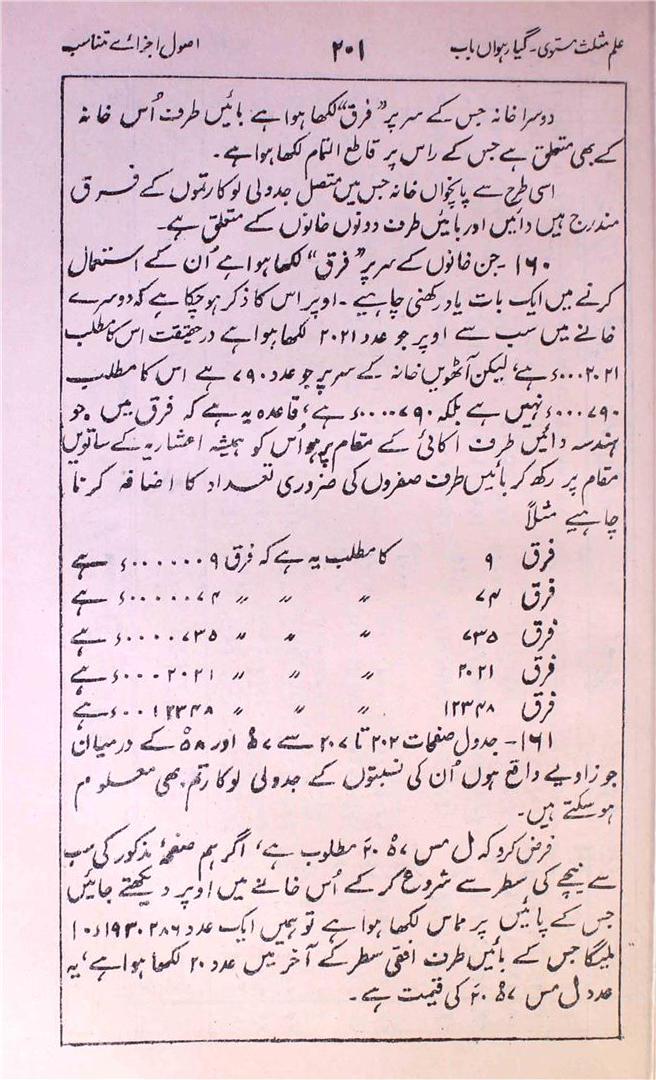 علم مثلث مستوی۔ گیارہواں باب ۲۰۱ اصول اجزائے متناسب
دوسرا خانہ جس کے سر پر ”فرق“ لکھا ہوا ہے بائیں طرف اُس خانہ
کے بھی متعلق ہے جس کے راس پر قاطع التمام لکھا ہوا ہے۔
اسی طرح سے پانچواں خانہ جس میں متصل جدولی لوکارتموں کے فرق
مندرج ہیں دائیں اور بائیں طرف دونوں خانوں کے متعلق ہے۔
۱۶۰ - جن خانوں کے سر پر ”فرق“ لکھا ہوا ہے اُن کے استعمال
کرنے میں ایک بات یاد رکھنی چاہیے۔ اوپر اس کا ذکر ہو چکا ہے کہ دوسرے
خانے میں سب سے اوپر جو عدد ۲۰۲۱ لکھا ہوا ہے درحقیقت اس کا مطلب
۰۰۰۲۰۲۱ء ہے، لیکن آٹھویں خانہ کے سر پر جو عدد ۷۹۰ ہے اس کا مطلب
۰۰۰۷۹۰ء نہیں ہے بلکہ ۰۰۰۰۷۹۰ء ہے، قاعدہ یہ ہے کہ فرق میں جو
ہندسہ دائیں طرف اکائی کے مقام پر ہو اُس کو ہمیشہ اعشاریہ کے ساتویں
مقام پر رکھ کر بائیں طرف صفروں کی ضروری تعداد کا اضافہ کرنا
چاہیے مثلاً
فرق ۹ کا مطلب یہ ہے کہ فرق ۰۰۰۰۰۰۹ء ہے
فرق ۷۴ " " " ۰۰۰۰۰۷۴ء ہے
فرق ۷۳۵ " " " ۰۰۰۰۷۳۵ء ہے
فرق ۲۰۲۱ " " " ۰۰۰۲۰۲۱ء ہے
فرق ۱۲۳۴۸ " " " ۰۰۱۲۳۴۸ء ہے
۱۶۱ - جدول صفحات ۲۰۲ تا ۲۰۷ سے ۷ْ۵ اور ۸ْ۵ کے درمیان
جو زاویے واقع ہوں اُن کی نسبتوں کے جدولی لوکارتم بھی معلوم
ہو سکتے ہیں۔
فرض کرو کہ ل مس ۷ْ۵ ۲۰َ مطلوب ہے، اگر ہم صفحۂ مذکور کی سب
سے نیچے کی سطر سے شروع کر کے اُس خانے میں اوپر دیکھتے جائیں
جس کے پائیں پر مماس لکھا ہوا ہے تو ہمیں ایک عدد ۱۰ء۱۹۳۰۲۸۶
ملیگا جس کے بائیں طرف افقی سطر کے آخر میں عدد ۲۰ لکھا ہوا ہے، یہ
عدد ل مس ۷ْ۵ ۲۰َ کی قیمت ہے۔